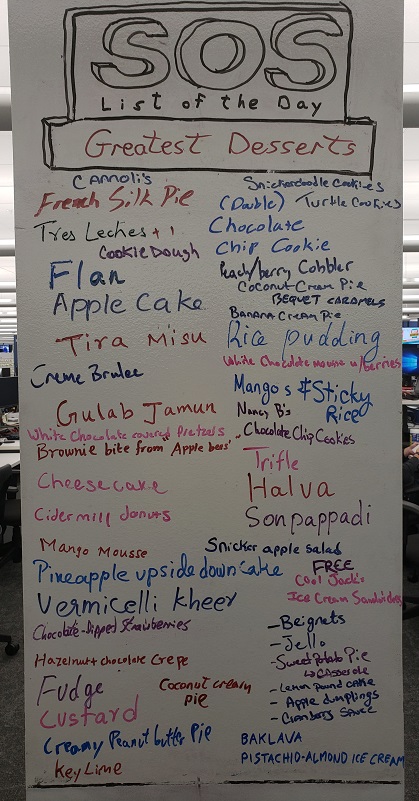 SOS
List of the Day
Greatest Desserts
Cannoli's
French Silk Pie
Tres Leches + 1
Cookie Dough
Flan
Apple Cake
Tira Misu
Creme Brulee
Gulab Jamun
White Chocolate covered Pretzels
Brownie bite from "Applebees"
Cheesecake
Cidermill donuts
Mango Mousse
Pineapple upside down cake
Vermicelli kheer
Chocolate-dipped strawberries
Hazelnut + chocolate crepe
Fudge
Coconut cream
Pie
Custard
Creamy Peanut butter Pie
Key Lime
Snickerdoodle Cookies
(Double) Turtle Cookies
Chocolate
Chip Cookie
Peach/berry Cobbler
Coconut Cream Pie
BEQUET CARAMELS
BANANA Cream Pie
Rice pudding
White Chocolate mouse w/berries
Mango s & Sticky
Rice
Nancy B's
Chocolate Chip Cookies
Trifle
Halva
Sonpappadi
Snicker apple salad
FREE
Cool Jack's
Ice Cream Sandwiches
- Beignets
- Jello
- Sweet Potato Pie
↳ Casserole
- Lemon Pound cake
- Apple dumplings
- Cranberry Sauce
BAKLAVA
PISTACHIO-ALMOND ICE CREAM